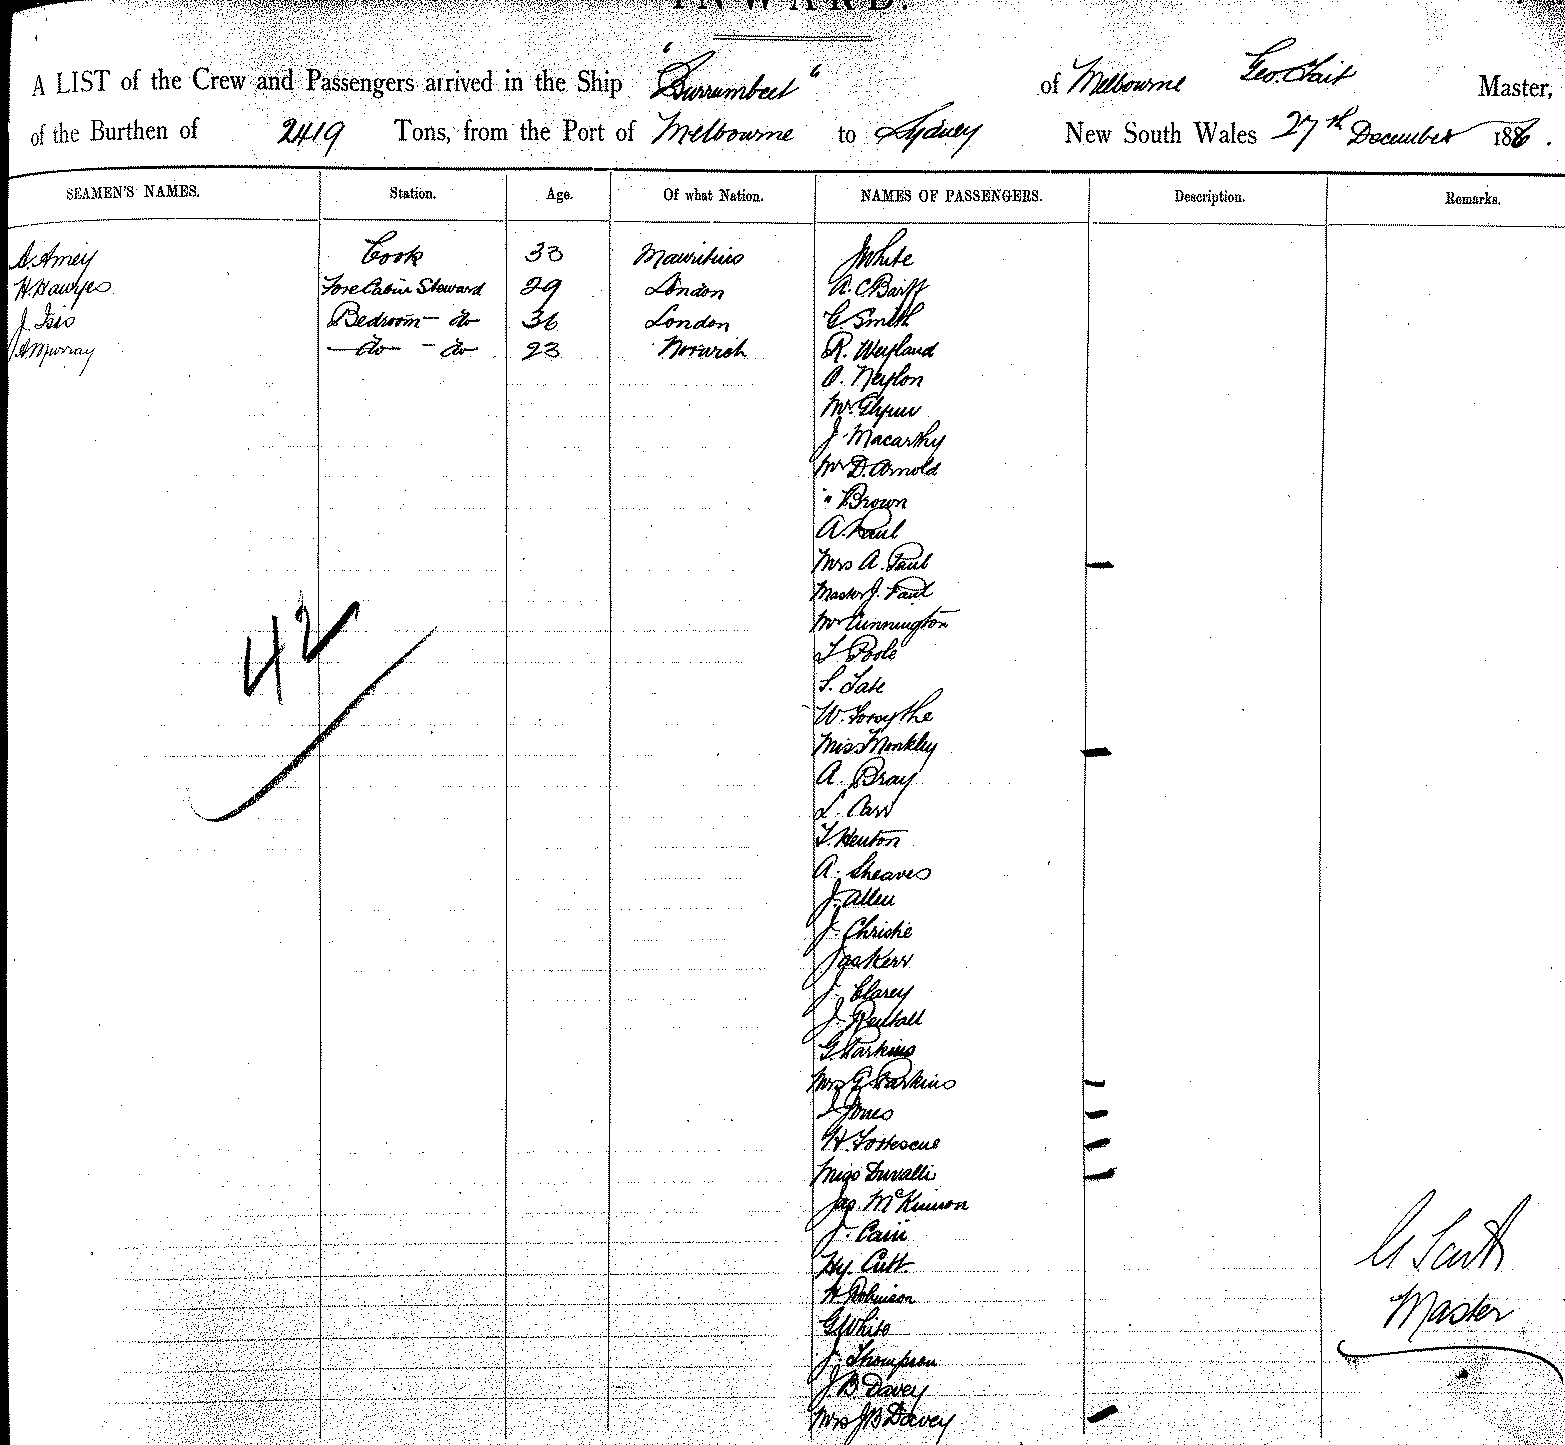 INWARD.
A LIST of the Crew and Passengers arrived in the Ship "Burrumbeet" of Melbourne Geo. Tait Master,
of the Burthen of 2419 Tons, from the Port of Melbourne to Sydney New South Wales 27th December 1886.
SEAMEN'S NAMES. Station. Age. Of what Nation. NAMES OF PASSENGERS. Description. Remarks.
Amey Cook 33 Mauritius J White
H. Hawyes Fore Cabin Steward 29 London A. C Barff
J. Isis Bedroom - do 36 London C. Smith
A Murray do - do 23 Norwich R. Weyland
O. Neylon
Mr. Glynn
J. Macarthy
Mr D. Arnold
" Brown
A. Paul
Mrs A. Paul
Master J. Paul
Mr Cunnington
T Poole
S. Tate
W. Forsythe
Miss Monkley
A. Bray
L. Carr
T. Henton
A. Sheaves
J. Allen
J. Christie
Jas Kerr
J. Clarey
J. Rentall
G. Parkins
Mrs G. Parkins
Jones
H. Fortescue
Miss Duvalli
Jas. McKinnon
J. Cain
Hy. Cutt
H Robinson
G White
J. Thompson
J B Davey
Mrs J B Davey
42
G Tait
Master